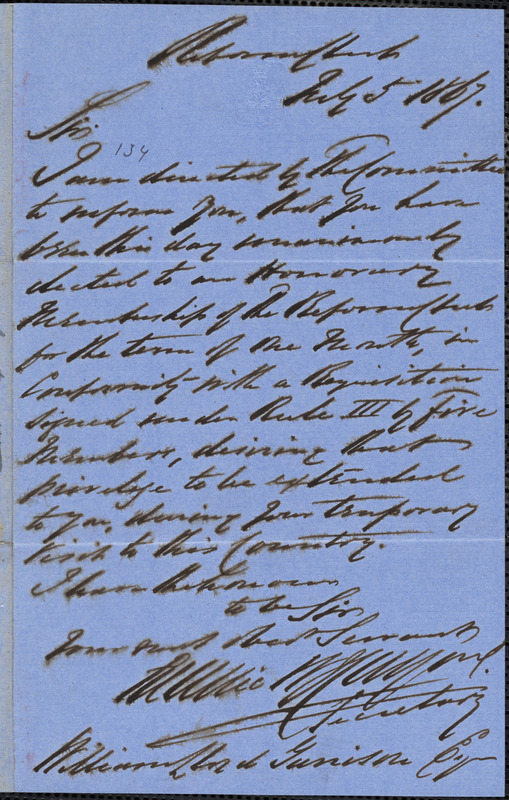 Reform Club
July 5 1867.
Sir
134
I am directed by The Committee
to inform you, that you have
been this day unanimously
elected to an Honorary
Membership of the Reform Club
for the term of One Month, in
Conformity with a Requisition
signed under Rule III by Five
Members, desiring that
privilege to be extended
to you, during your temporary
Visit to this Country.
I have the honour
to be Sir
Your most Obedt Servant
Secretary
William Lloyd Garrison Esq